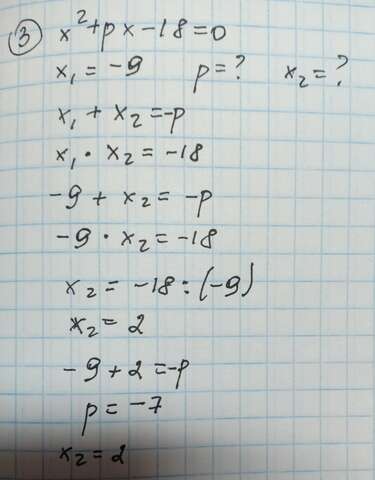 ③ x²+px-18=0
x₁ = -9 p=? x₂=?
x₁ + x₂ =-p
x₁ · x₂ = -18
-9 + x₂ = -p
-9 · x₂ = -18
x₂ = -18 : (-9)
x₂ = 2
-9+2=-p
p = -7
x₂ = 2